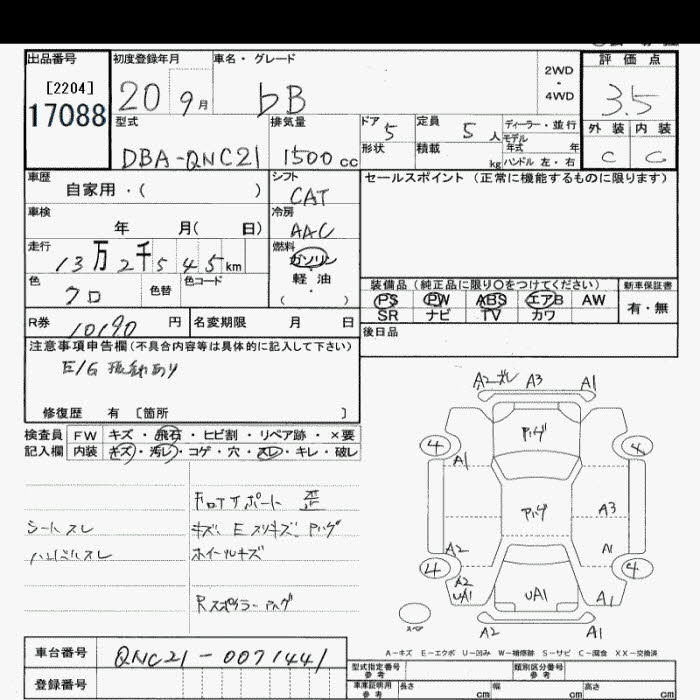 出品番号 初度登録年月 車名・グレード 2WD ・ 4WD 評価点
[2204]
17088
20 9月 bB 3.5
型式 排気量 ドア 5 定員 5人 ディーラー・並行 外装 内装
モデル年式 年
DBA-QNC21 1500cc 形状 積載 kg ハンドル 左・右 C C
車歴 自家用・( ) シフト CAT セールスポイント (正常に機能するものに限ります)
車検 年 月( 日) 冷房 AAC
走行 13万2千545km 燃料 ガソリン
軽油
( ・ )
色 クロ 色替 色コード
装備品 (純正品に限り○をつけてください) 新車保証書
PS PW ABS エアB AW 有・無
SR ナビ TV カワ
R券 10190円 名変期限 月 日 後日品
注意事項申告欄(不具合内容等は具体的に記入して下さい)
E/G 振動あり
修復歴 有 〔箇所 〕
検査員 FW キズ・飛石・ヒビ割・リペア跡・×要
記入欄 内装 キズ・汚レ・コゲ・穴・スレ・キレ・破レ
シートスレ
ハンドルスレ
F.ロアサポート 歪
キズ、E スリキズ、アハゲ
ホイールキズ
Rスポイラーハゲ
A2 ズレ A3 A1
アハゲ
4 4
A1
アハゲ A3
A2
4 4
A2
UA1 UA1 A1
スペア
A2 A1
A-キズ E-エクボ U-凹み W-補修跡 S-サビ C-腐食 XX-交換済
車台番号 QNC21-0071441
登録番号
型式指定番号 参考 類別区分番号 参考
車庫証明用 参考 長さ cm 幅 cm 高さ cm